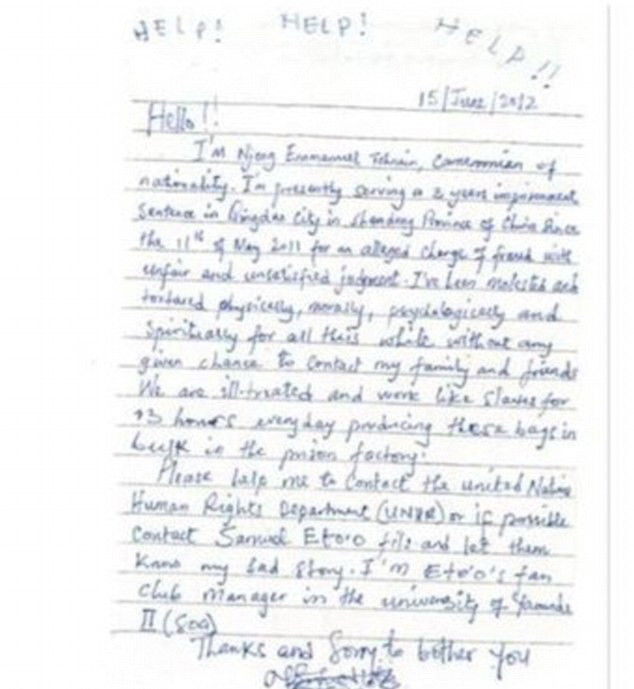 HELP! HELP! HELP!!
15/June/2012
Hello!!
I'm Njong Emmanuel Tohnain, Cameroonian of
nationality. I'm presently serving a 3 years imprisonment
Sentence in Qingdao City in Shandong Province of China Since
the 11th of May 2011 for an alleged charge of fraud with
unfair and unsatisfied judgment. I've been molested and
tortured physically, morally, psychologically and
Spiritually for all this while without any
given chance to contact my family and friends
We are ill-treated and work like slaves for
13 hours everyday producing these bags in
bulk in the prison factory.
Please help me to Contact the united Nations
Human Rights Department (UNHR) or if possible
Contact Samuel Eto'o fils and let them
Know my Sad Story. I'm Eto'o's fan
Club manager in the university of Yaounde
II (Soa)
Thanks and Sorry to bother You